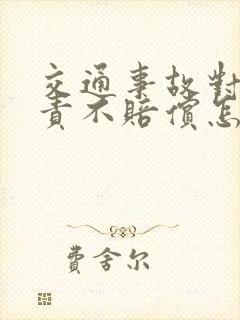 交通事故對
責不賠償怎
費舍尔